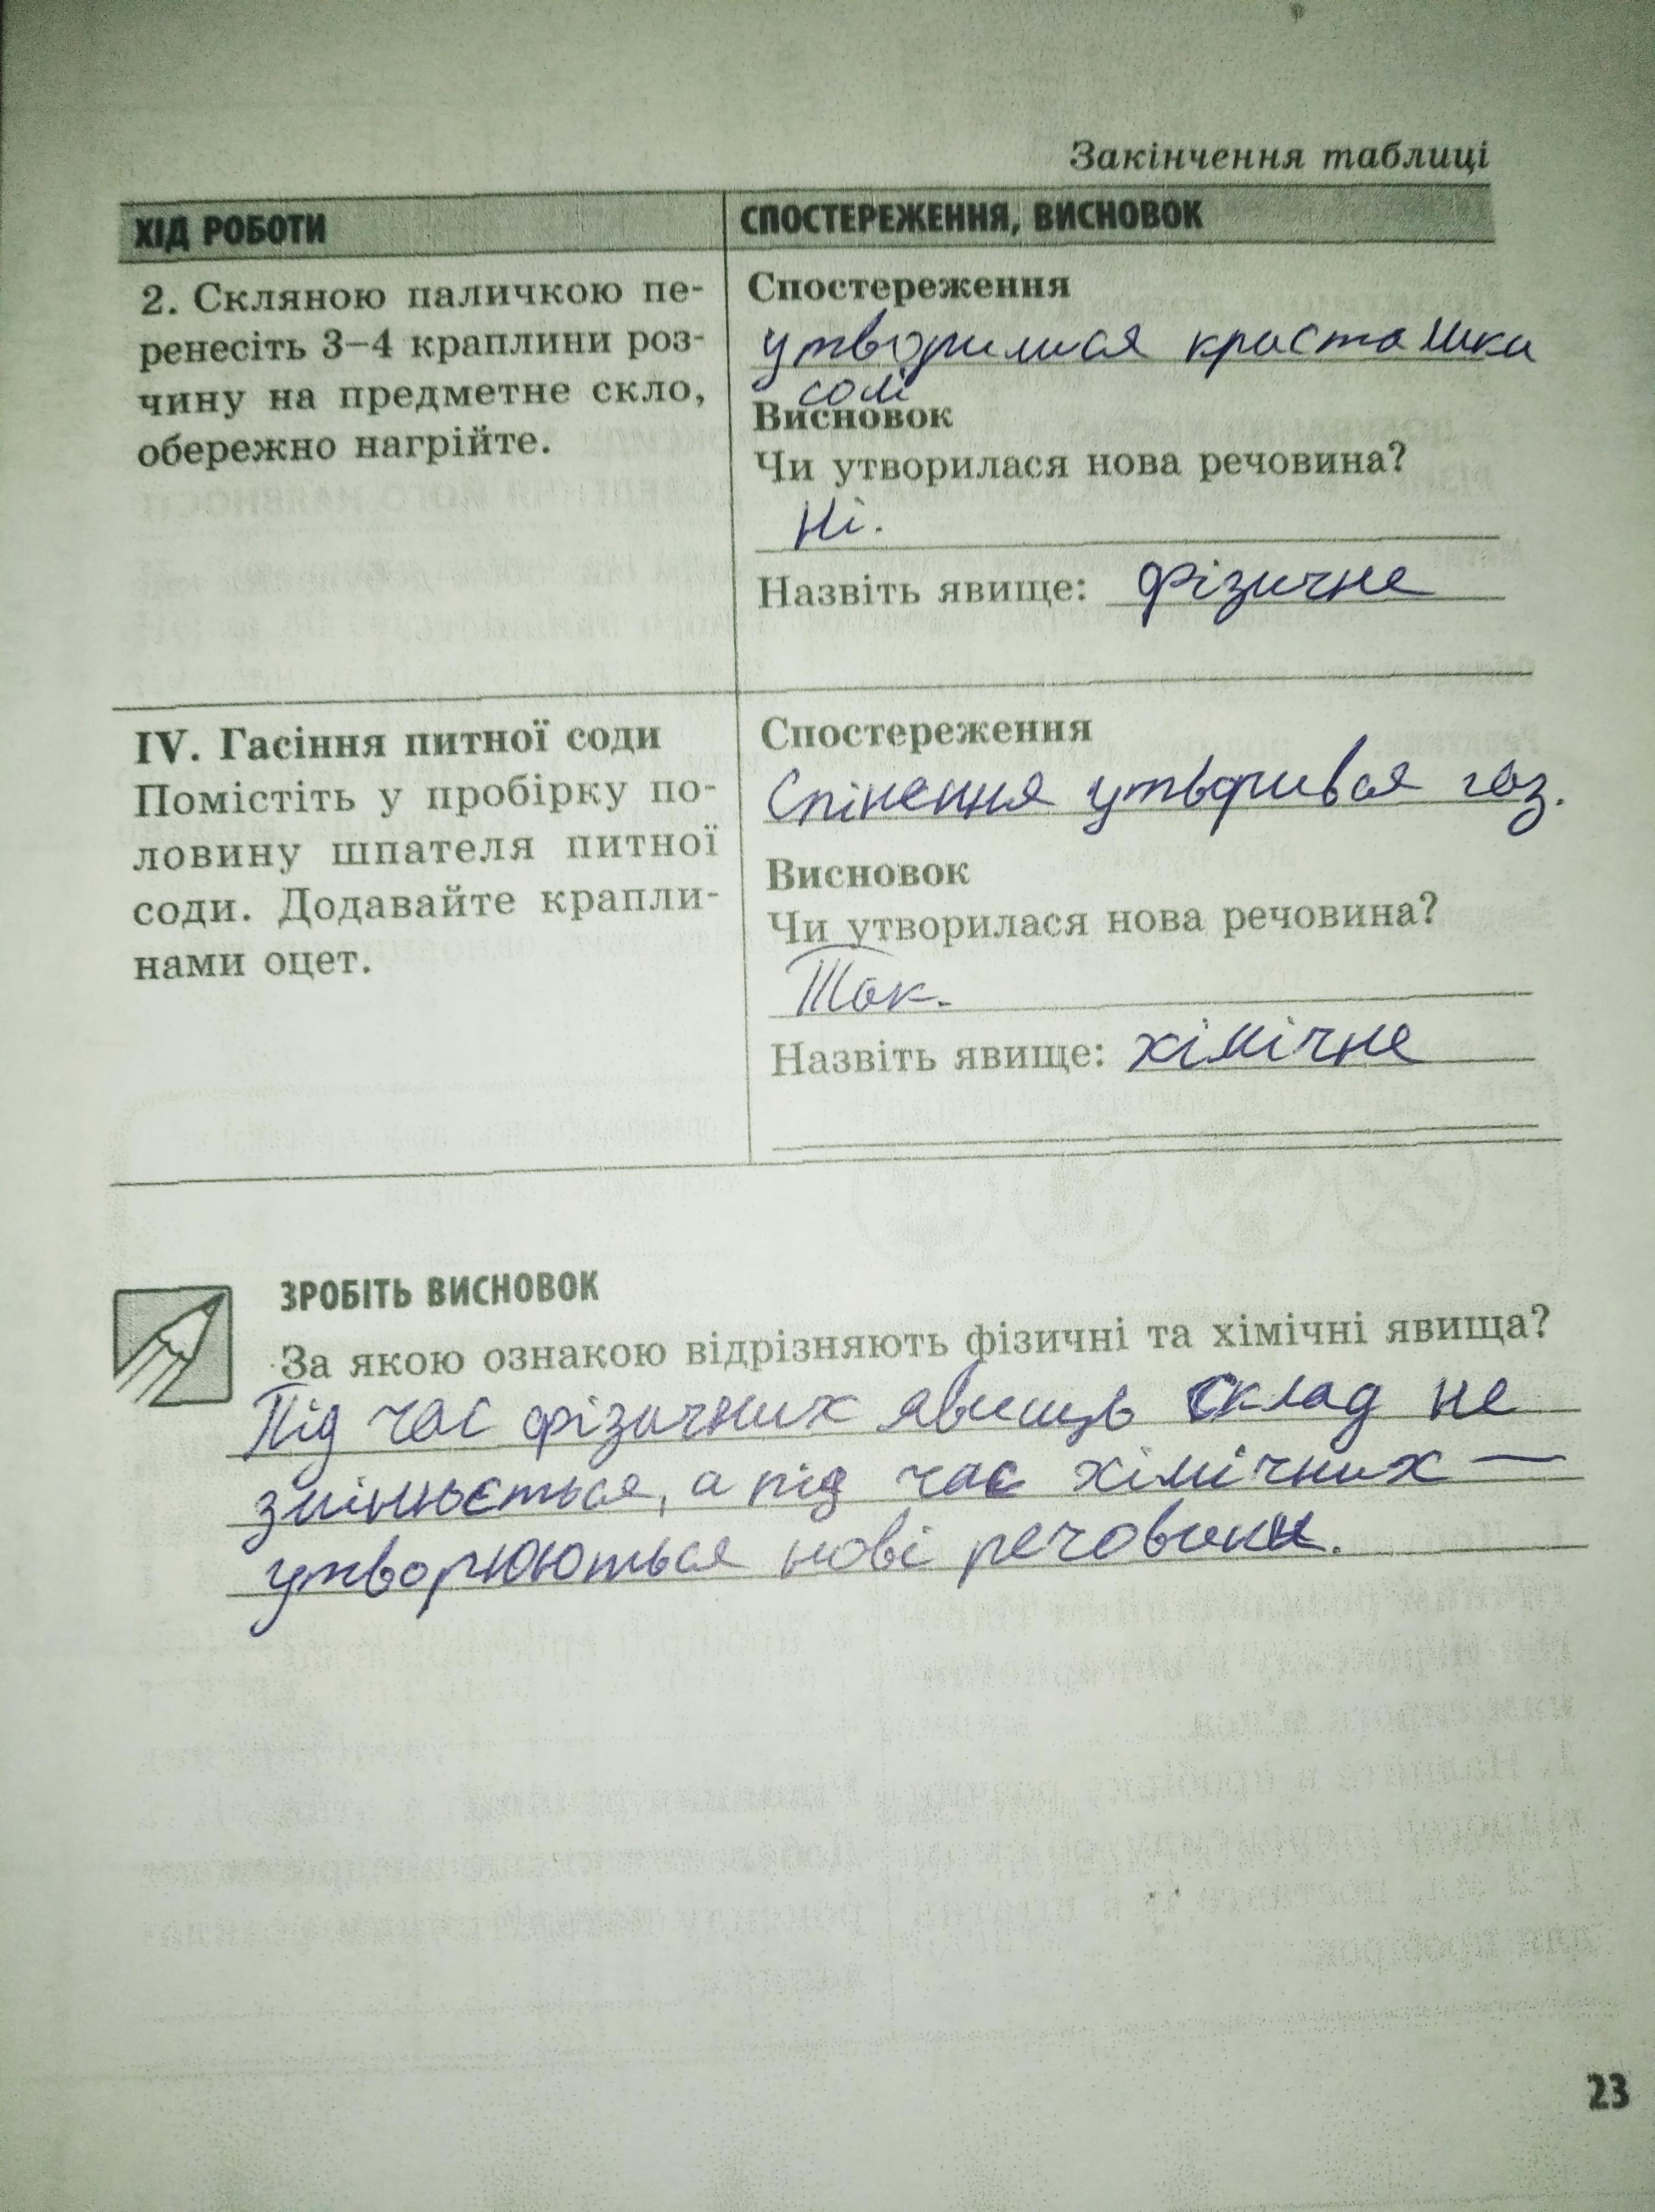 Закінчення таблиці
ХІД РОБОТИ
СПОСТЕРЕЖЕННЯ, ВИСНОВОК
2. Скляною паличкою пе-
ренесіть 3–4 краплини роз-
чину на предметне скло,
обережно нагрійте.
Спостереження
утворилися кристалики
солі
Висновок
Чи утворилася нова речовина?
Ні.
Назвіть явище: фізичне
IV. Гасіння питної соди
Помістіть у пробірку по-
ловину шпателя питної
соди. Додавайте крапли-
нами оцет.
Спостереження
Спінення утворився газ.
Висновок
Чи утворилася нова речовина?
Так.
Назвіть явище: хімічне
ЗРОБІТЬ ВИСНОВОК
За якою ознакою відрізняють фізичні та хімічні явища?
Під час фізичних явищ склад не
змінюється, а під час хімічних —
утворюються нові речовини.
23